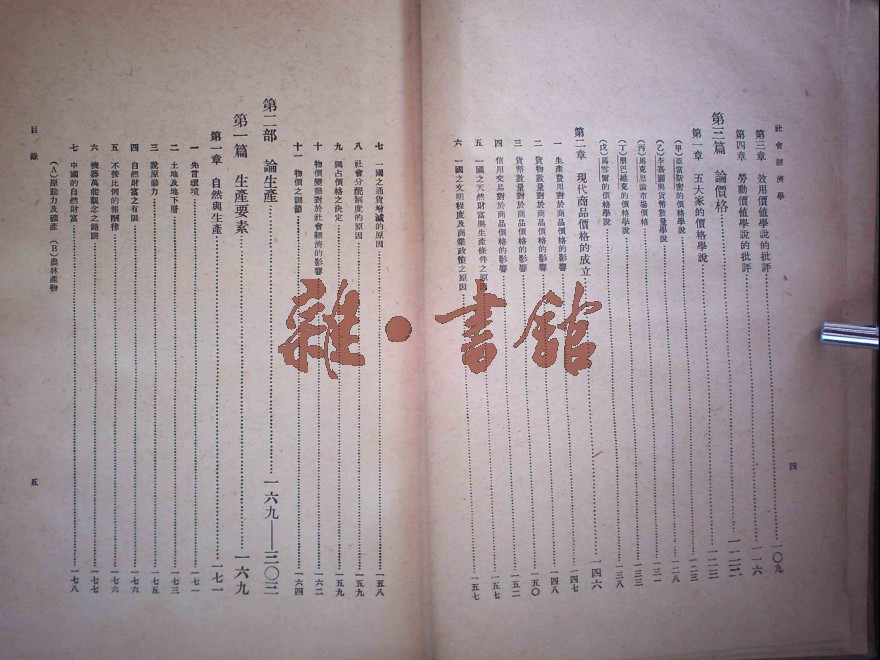 社會經濟學
第三章 效用價值學說的批評 一〇九
第四章 勞動價值學說的批評 一一六
第三篇 論價格
第一章 五大家的價格學說 一二三
(甲)亞當斯密的價格學說 一二八
(乙)李嘉圖與貨幣數量學說 一三一
(丙)馬克思論市場價格 一三三
(丁)龐巴維克的價格學說 一三八
(戊)馬雪爾的價格學說
第二章 現代商品價格的成立 一四六
一 生產費用對於商品價格的影響 一四七
二 貨物數量對於商品價格的影響 一四八
三 貨幣數量對於商品價格的影響 一五〇
四 信用交易對於商品價格的影響 一五二
五 一國之天然財富與生產條件之原因 一五五
六 一國之文明程度及商業政策之原因 一五七
四
七 一國之通貨增減的原因 一五八
八 社會分配制度的原因 一五九
九 獨占價格之決定 一五九
十 物價變動對於社會經濟的影響 一六二
十一 物價之調節 一六四
第二部 論生產 一六九——三〇三
第一篇 生產要素 一六九
第一章 自然與生產 一七一
一 先言環境 一七一
二 土地及地下層 一七三
三 說原動力 一七五
四 自然財富之有限 一七六
五 不按比例的報酬律 一七六
六 機器萬能觀念之錯誤 一七七
七 中國的自然財富 一七八
(A)原動力及礦產 (B)農林產物
目錄
五
雜·書館